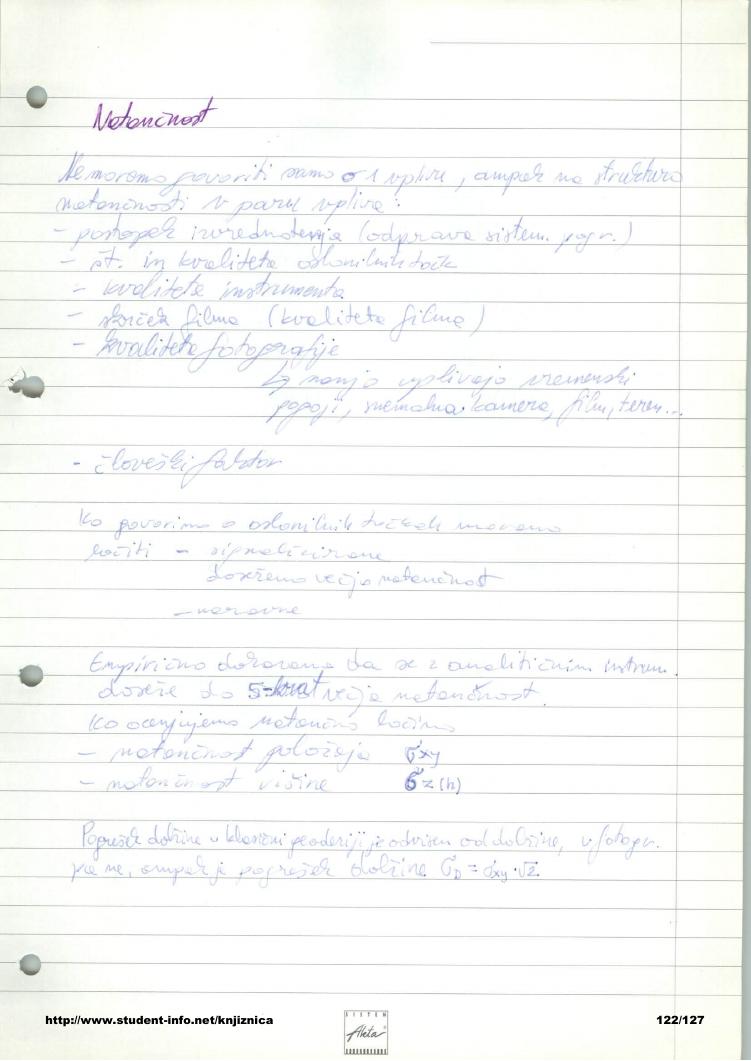 Natančnost
Ne moremo govoriti samo o 1 vplivu, ampak na struktura
natančnosti v paru vpliva:
- postopek izvrednotenja (odprava sistem. pogr.)
- št. in kvaliteta oslonilnih točk
- kvaliteta instrumenta
- skrček filma (kvaliteta filma)
- kvaliteta fotografije
↳ nanjo vplivajo vremenski
pogoji, snemalna kamera, film, teren...
- človeški faktor
Ko govorimo o oslonilnih točkah moramo
ločiti - signalizirane
dosežemo večjo natančnost
- naravne
Empirično dokazano da se z analitičnim instrum.
doseže do 5-krat večja natančnost.
Ko ocenjujemo natančno ločimo
- natančnost položaja σxy
- natančnost višine σz(h)
Pogrešek dolžine v klasični geodeziji je odvisen od dolžine, v fotogr.
pa ne, ampak je pogrešek dolžine σD = σxy · √2
http://www.student-info.net/knjiznica
SISTEM
Akta
122/127